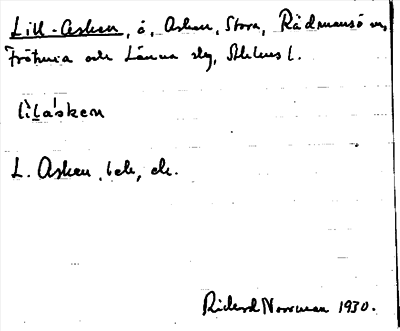 Lill-Asken, ö, Asken, Stora, Rådmansö sn,
Frötuna och Länna skg, Sthlms l.
lìlàsken
L. Asken, bek, ek.
Rickard Norrman 1930.